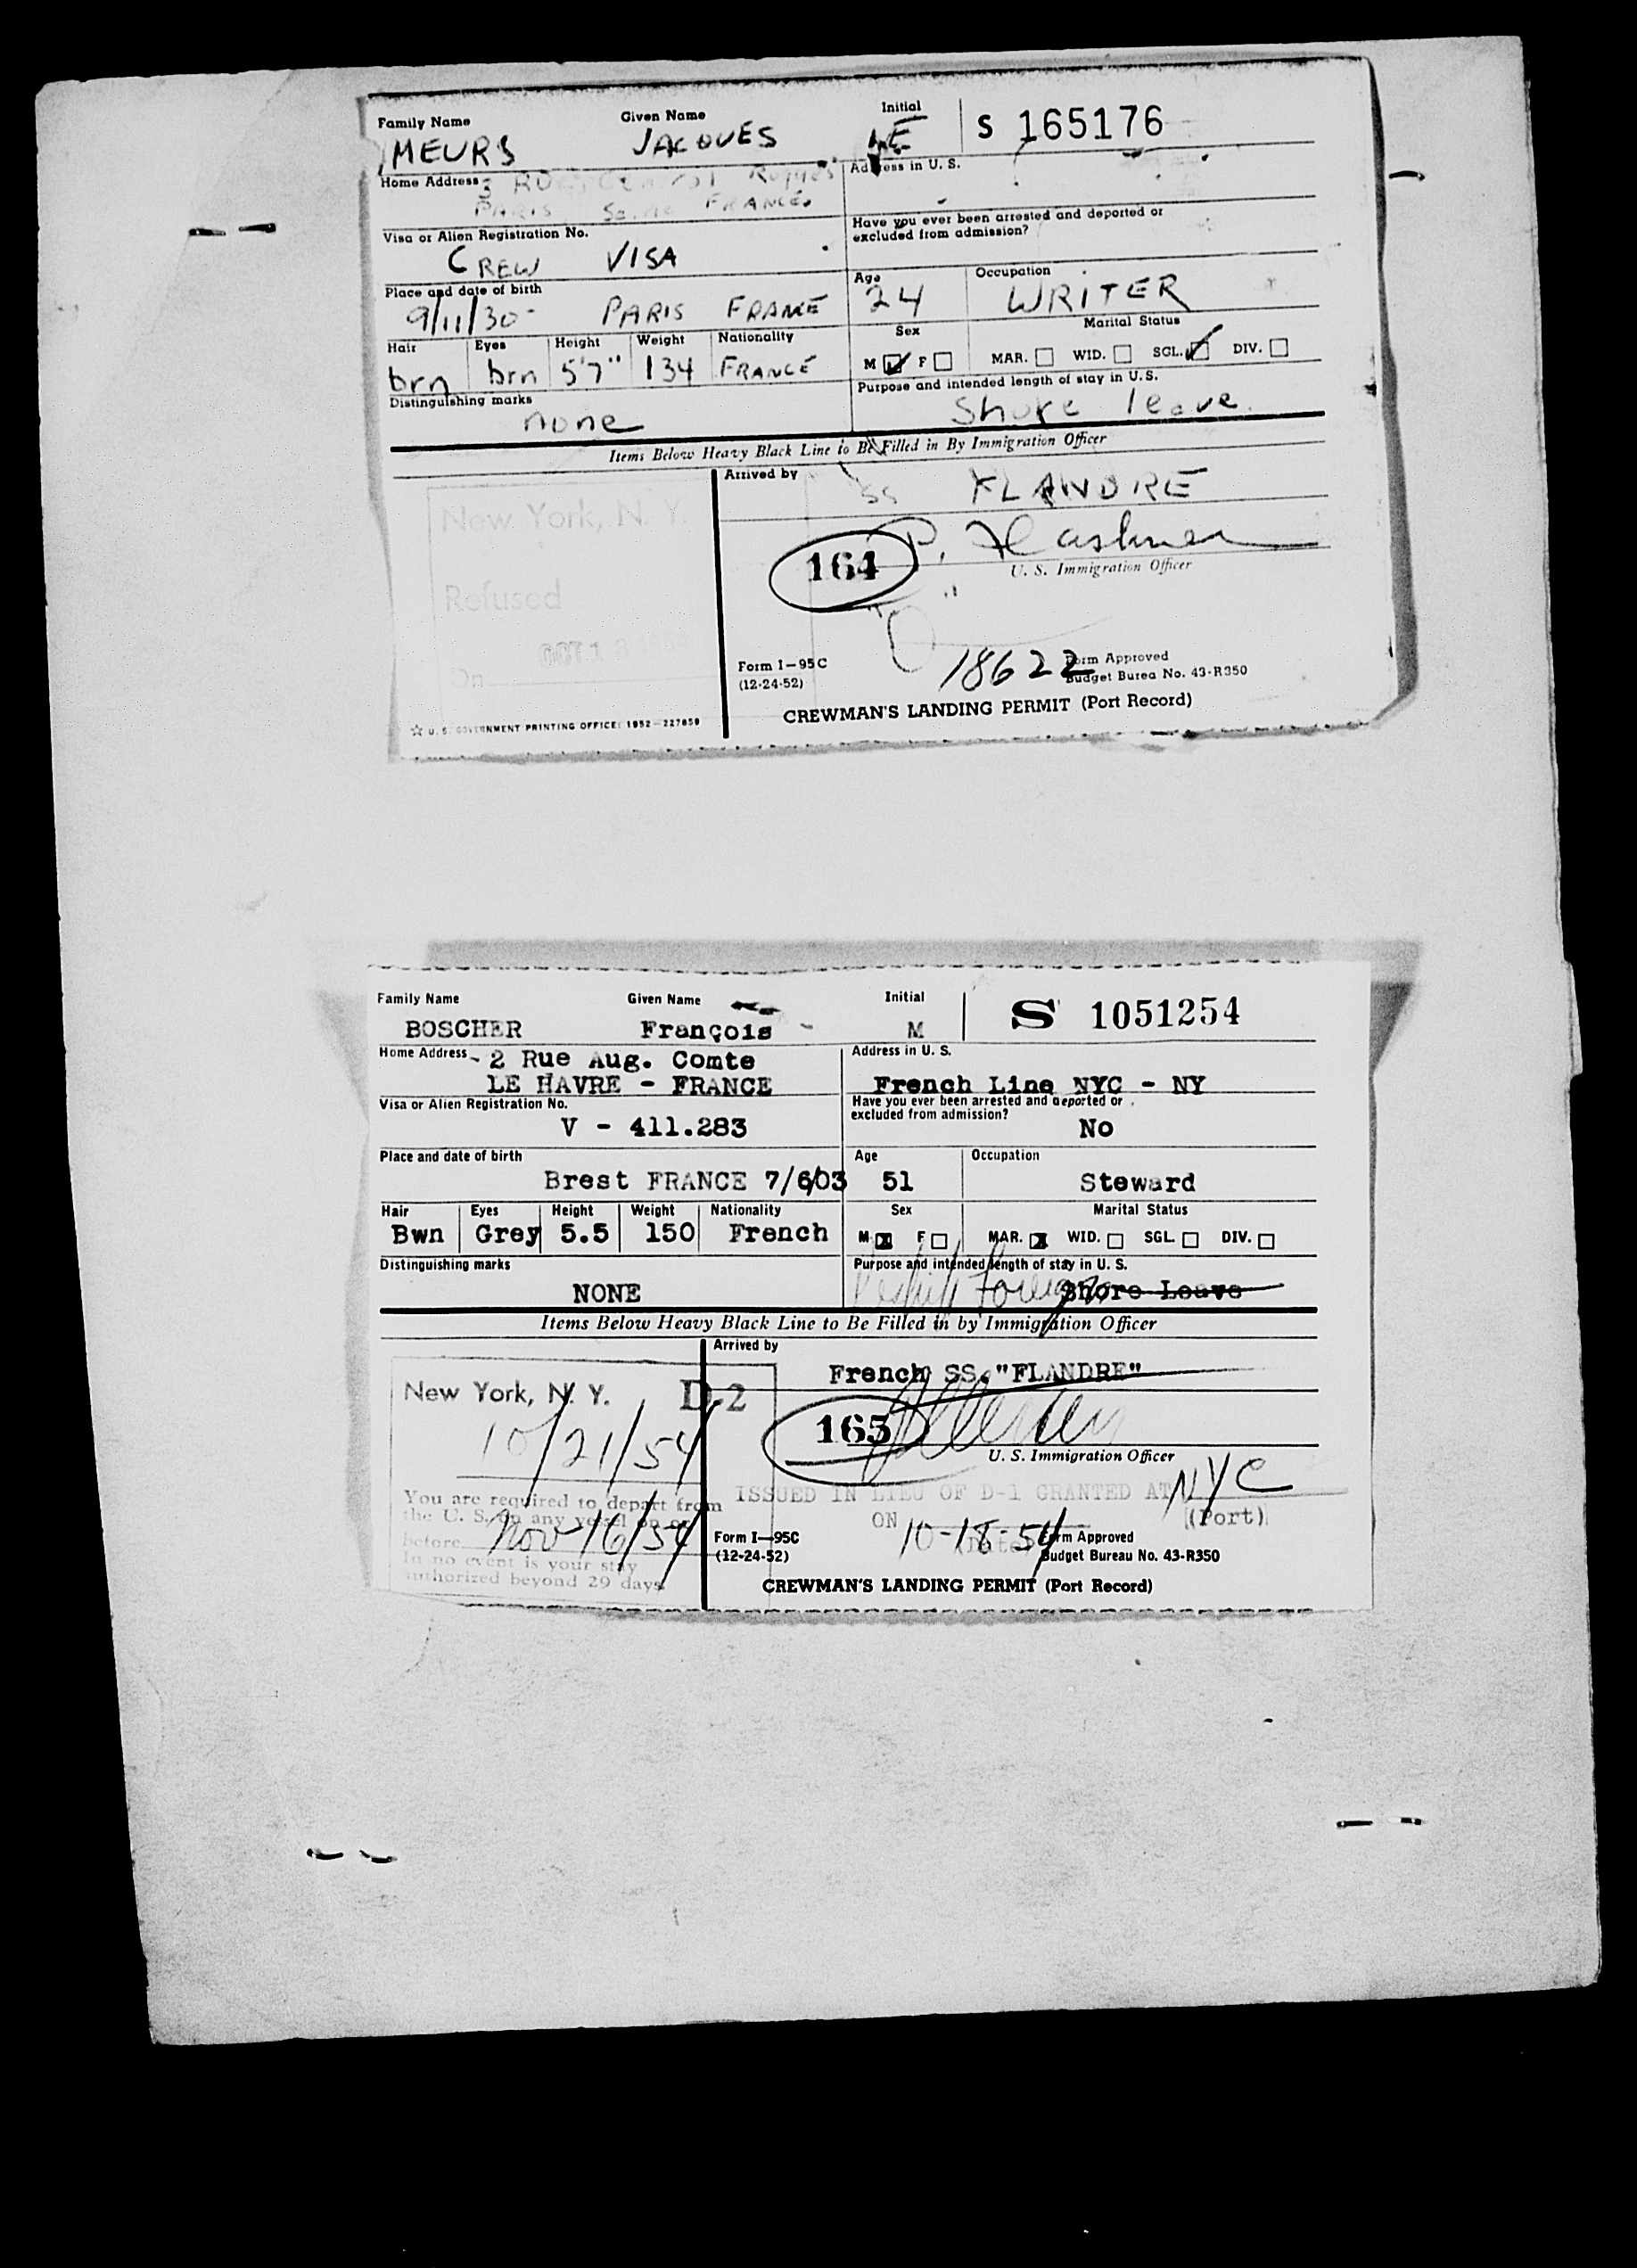 Family Name Given Name Initial
MEURS JACQUES E S 165176
Home Address Address in U. S.
3
PARIS FRANCE.
Visa or Alien Registration No. Have you ever been arrested and deported or excluded from admission?
CREW VISA
Place and date of birth Age Occupation
9/11/30 PARIS FRANCE 24 WRITER
Hair Eyes Height Weight Nationality Sex Marital Status
brn brn 5'7" 134 FRANCE M F MAR. WID. SGL. DIV.
Distinguishing marks Purpose and intended length of stay in U.S.
none Shore leave.
Items Below Heavy Black Line to Be Filled in By Immigration Officer
Arrived by
SS FLANDRE
New York, N. Y.
164
U. S. Immigration Officer
Refused
On OCT 1
18622
Form I-95C Form Approved
(12-24-52) Budget Burea No. 43-R350
CREWMAN'S LANDING PERMIT (Port Record)
☆ U. S. GOVERNMENT PRINTING OFFICE: 1952-227859
Family Name Given Name Initial
BOSCHER François - M S 1051254
Home Address Address in U. S.
- 2 Rue Aug. Comte
LE HAVRE - FRANCE French Line NYC - NY
Visa or Alien Registration No. Have you ever been arrested and deported or excluded from admission?
V - 411.283 No
Place and date of birth Age Occupation
Brest FRANCE 7/6/03 51 Steward
Hair Eyes Height Weight Nationality Sex Marital Status
Bwn Grey 5.5 150 French M X F MAR. X WID. SGL. DIV.
Distinguishing marks Purpose and intended length of stay in U. S.
NONE Shore Leave
Items Below Heavy Black Line to Be Filled in by Immigration Officer
Arrived by
French SS. "FLANDRE"
New York, N. Y. D-2
10/21/54
165
U. S. Immigration Officer
You are required to depart from
the U. S. on any vessel on or
before Nov 16/54
In no event is your stay
authorized beyond 29 days.
ISSUED IN LIEU OF D-1 GRANTED AT NYC
(Port)
ON 10-18-54
(Date)
Form I-95C Form Approved
(12-24-52) Budget Bureau No. 43-R350
CREWMAN'S LANDING PERMIT (Port Record)